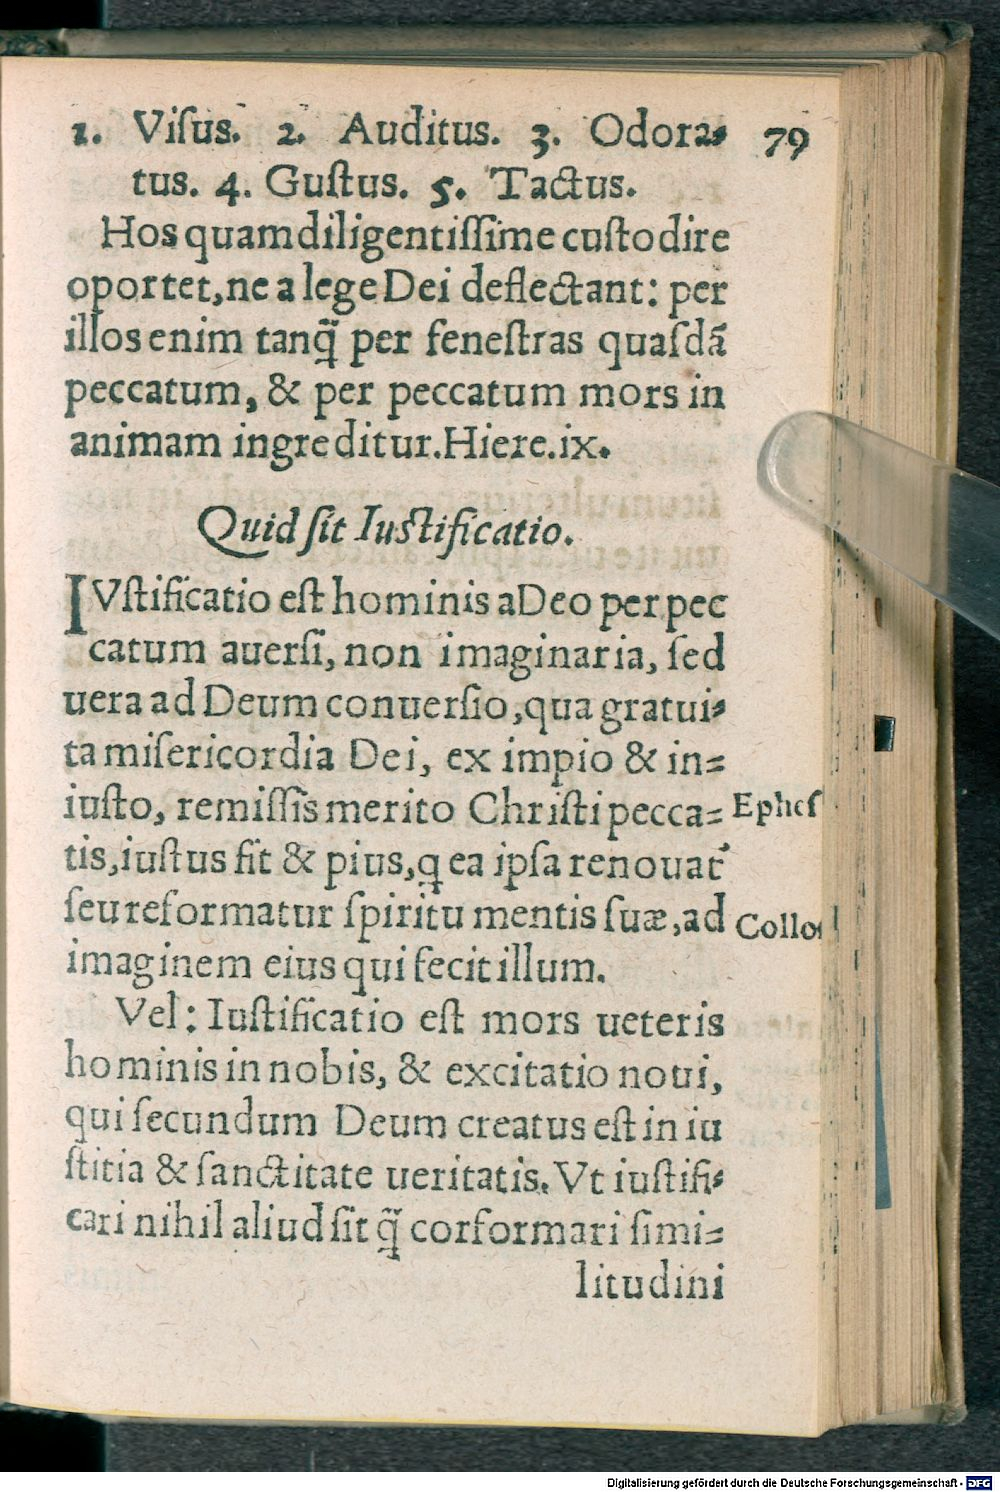 1. Viſus. 2. Auditus. 3. Odora- 79
tus. 4. Guſtus. 5. Tactus.
Hos quam diligentiſſime cuſtodire
oportet, ne a lege Dei deflectant: per
illos enim tanq̃ per feneſtras quaſdã
peccatum, & per peccatum mors in
animam ingreditur. Hiere. ix.
Quid ſit Iuſtificatio.
IVſtificatio eſt hominis a Deo per pec
catum auerſi, non imaginaria, ſed
uera ad Deum conuerſio, qua gratui-
ta miſericordia Dei, ex impio & in=
iuſto, remiſſis merito Chriſti pecca= Epheſ
tis, iuſtus fit & pius, q ea ipſa renouat᷑
ſeu reformatur ſpiritu mentis ſuæ, ad Colloſ
imaginem eius qui fecit illum.
Vel: Iuſtificatio eſt mors ueteris
hominis in nobis, & excitatio noui,
qui ſecundum Deum creatus eſt in iu
ſtitia & ſanctitate ueritatis. Vt iuſtifi-
cari nihil aliud ſit q̃ corformari ſimi=
litudini
Digitalisierung gefördert durch die Deutsche Forschungsgemeinschaft - DFG